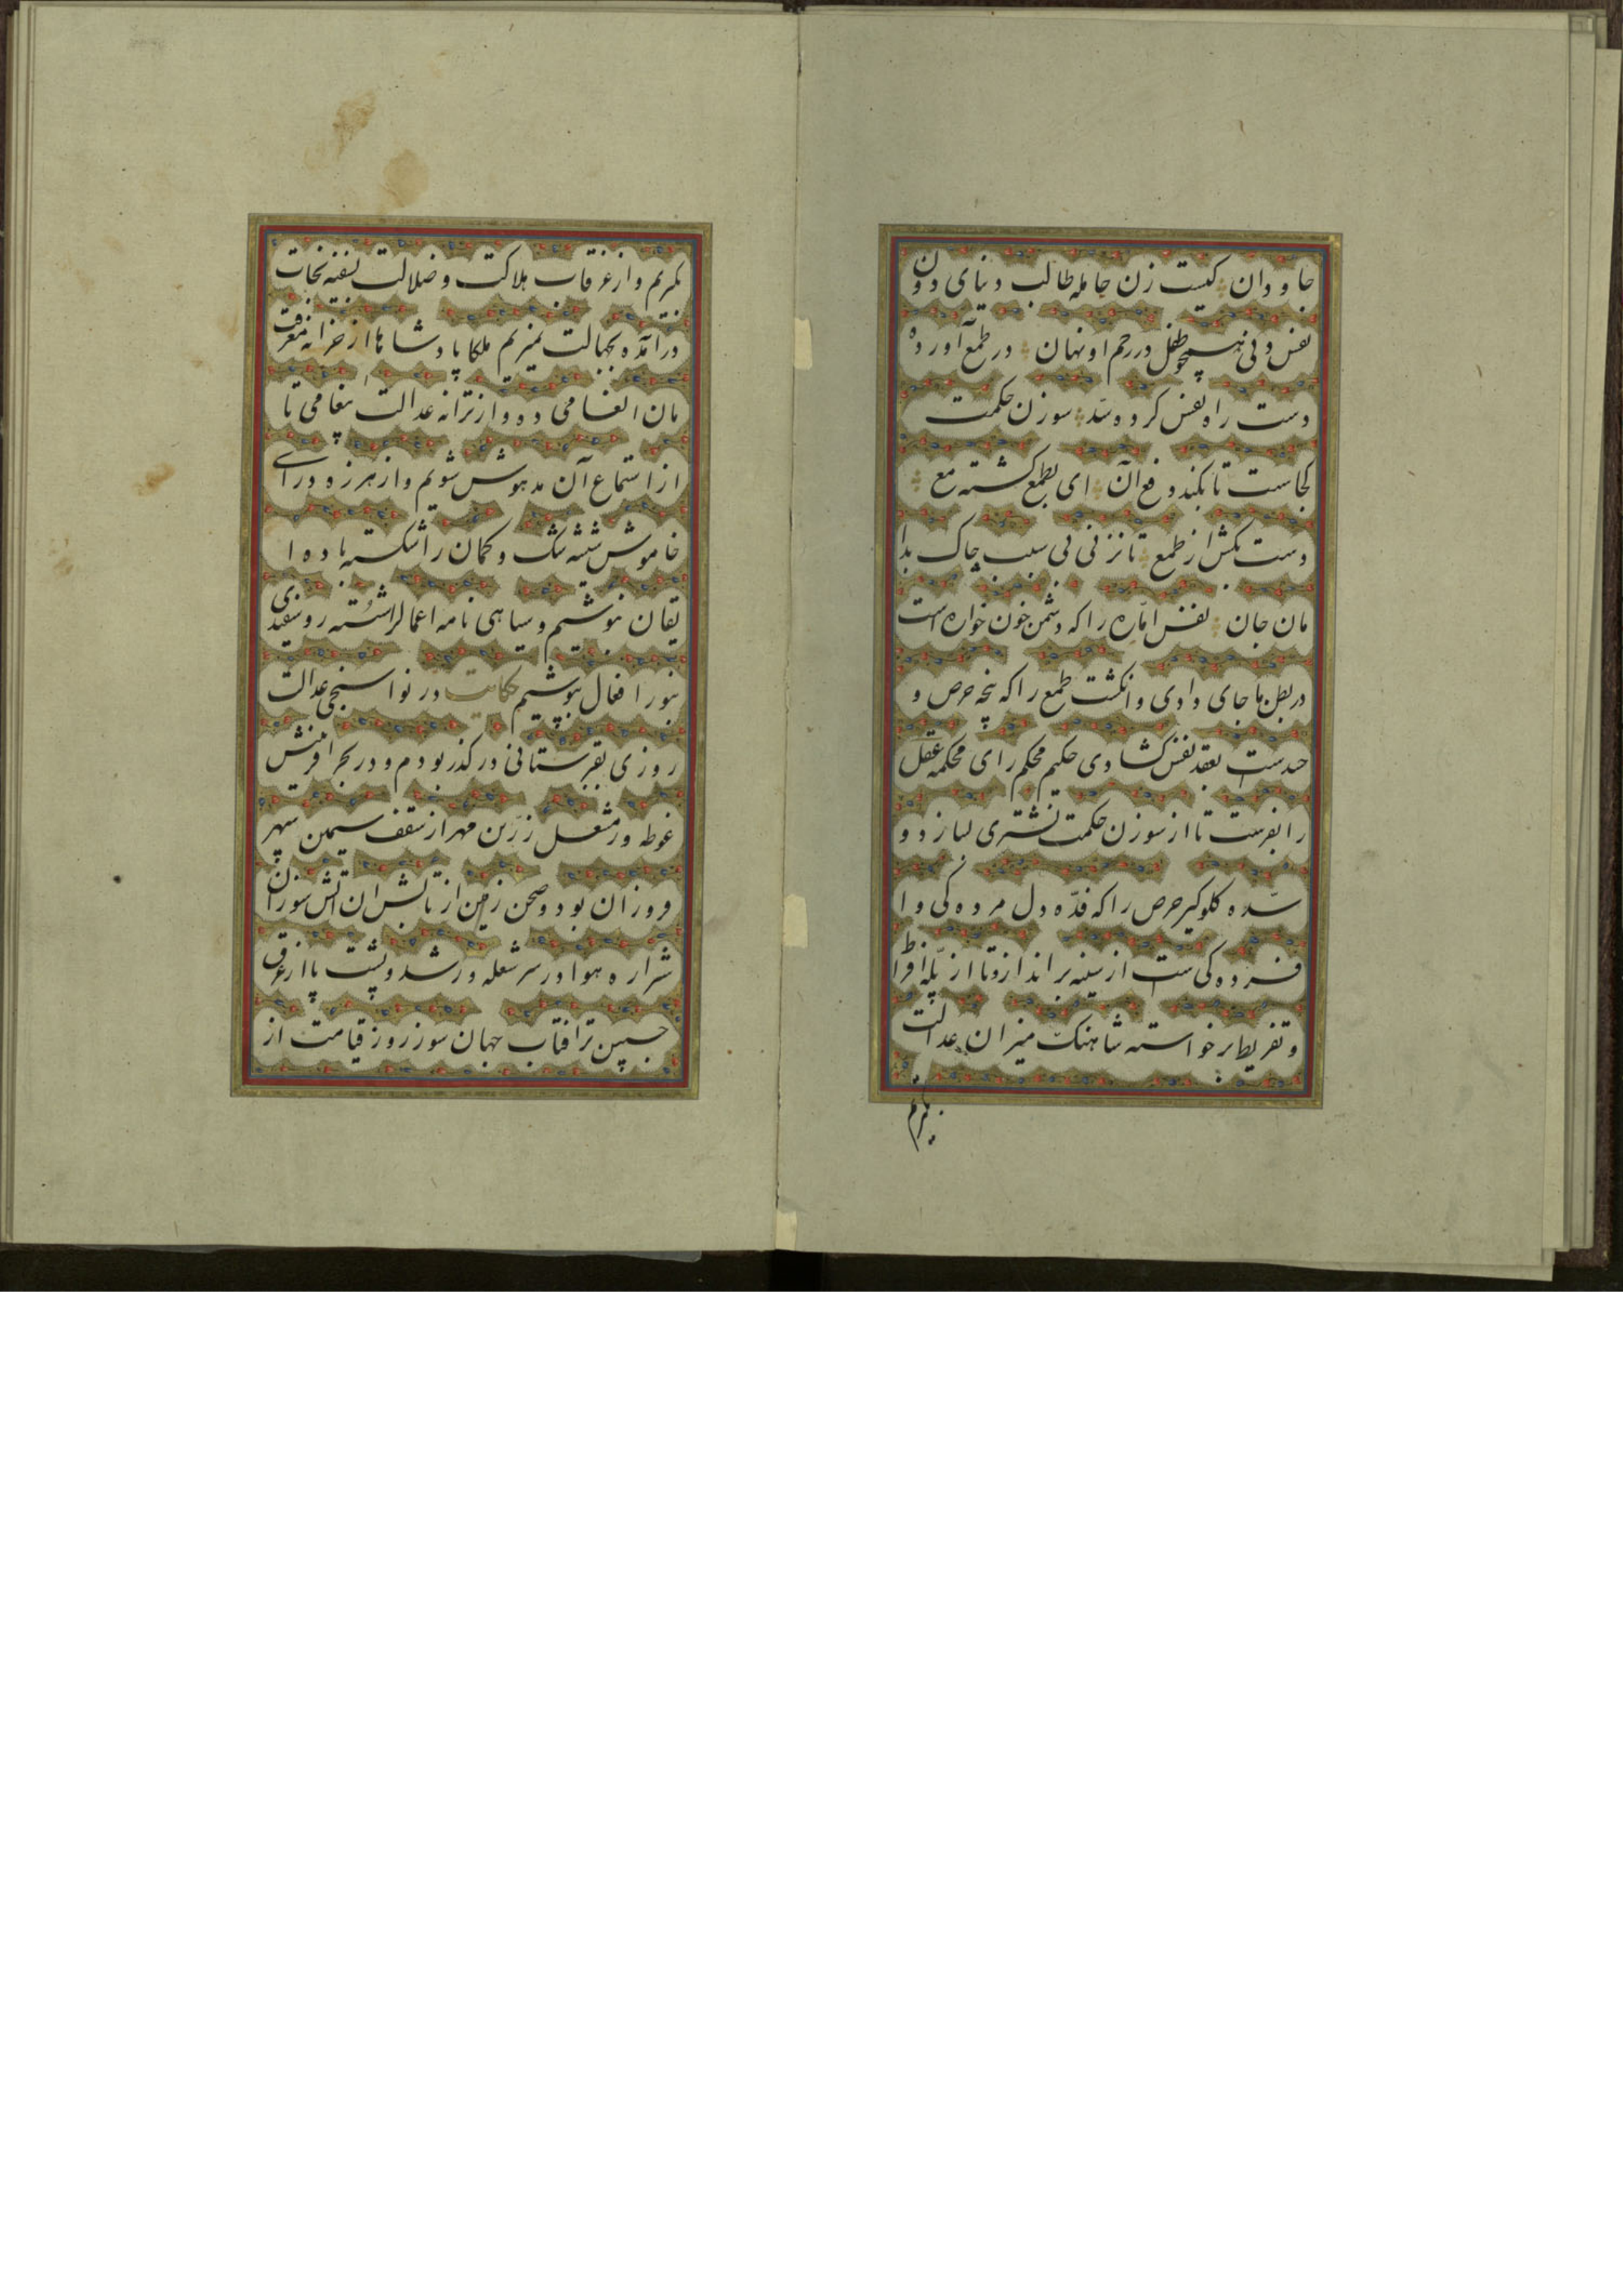 جاودان کیست زن حامله طالب دنیای دون
نفس دنی همچو طفل در رحم او نهان در طمع آورده
دست راه نفس کرده سد سوزن حکمت
کجاست تا بکند دفع آن ای بطمع کشته مع
دست بکش از طمع تا نزنی بی سبب چاک بدا
مان جان نفس اماره را که دشمن خون خواره است
در بطن ما جای دادی وانکشت طمع را که پنجه حرص و
حسدست بعقد نفس کشادی حکیم محکم رای محکمه عقل
را بفرست تا از سوزن حکمت نشتری سازد و
سده کلوکیر حرص را که غده دل مرده کی و ا
فسرده کی ست از سینه براندازد تا از پله افراط
و تفریط برخواسته شاهنک میزان عدالت
بکریم
بکریم و از غرقاب هلاکت و ضلالت بسفینه نجات
درآمده بجهالت نمیریم ملکا پادشاها از خزانه معرفت
مان انعامی ده و از ترانه عدالت پیغامی تا
از استماع آن مدهوش شویم و از هرزه درای
خاموش شیشه شک و کمان را شکسته باده ا
یقان بنوشیم و سیاهی نامه اعمال را شسته رو سفیدی
بنور افعال بپوشیم حکایت در نوا سنجی عدالت
روزی بقبرستانی در کذر بودم و در بحر افرینش
غوطه ور مشعل زرین مهر از سقف سیمین سپهر
فروزان بود و صحن زمین از تابش ان اتش سوزان
شراره هوا در سر شعله ور شد و پشت پا از عرق
جبین تر افتاب جهان سوز روز قیامت از